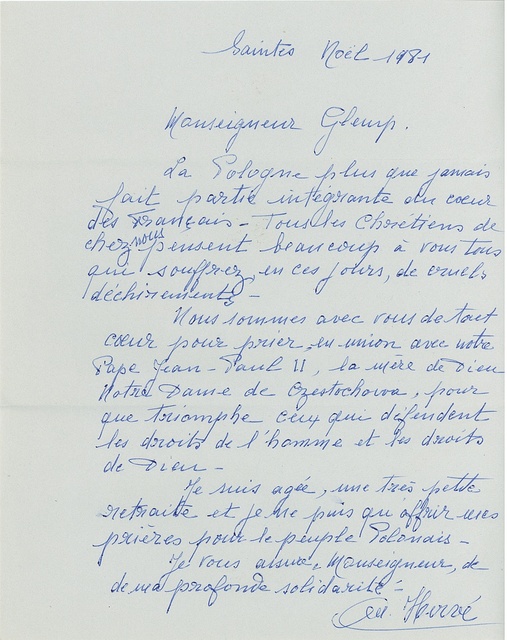 Saintes Noël 1981
Monseigneur Glemp.
La Pologne plus que jamais
fait partie intégrante du cœur
des Français - Tous les Chrétiens de
chez nous pensent beaucoup à vous tous
qui souffrez, en ces jours, de cruels
déchirements -
Nous sommes avec vous de tout
cœur pour prier, en union avec notre
Pape Jean-Paul II, la mère de Dieu
Notre Dame de Czestochowa, pour
que triomphe ceux qui défendent
les droits de l'homme et les droits
de Dieu -
Je suis agée, une très petite
retraite et je ne puis qu'offrir mes
prières pour le peuple Polonais -
Je vous assure, Monseigneur, de
de ma profonde solidarité -
Hervé